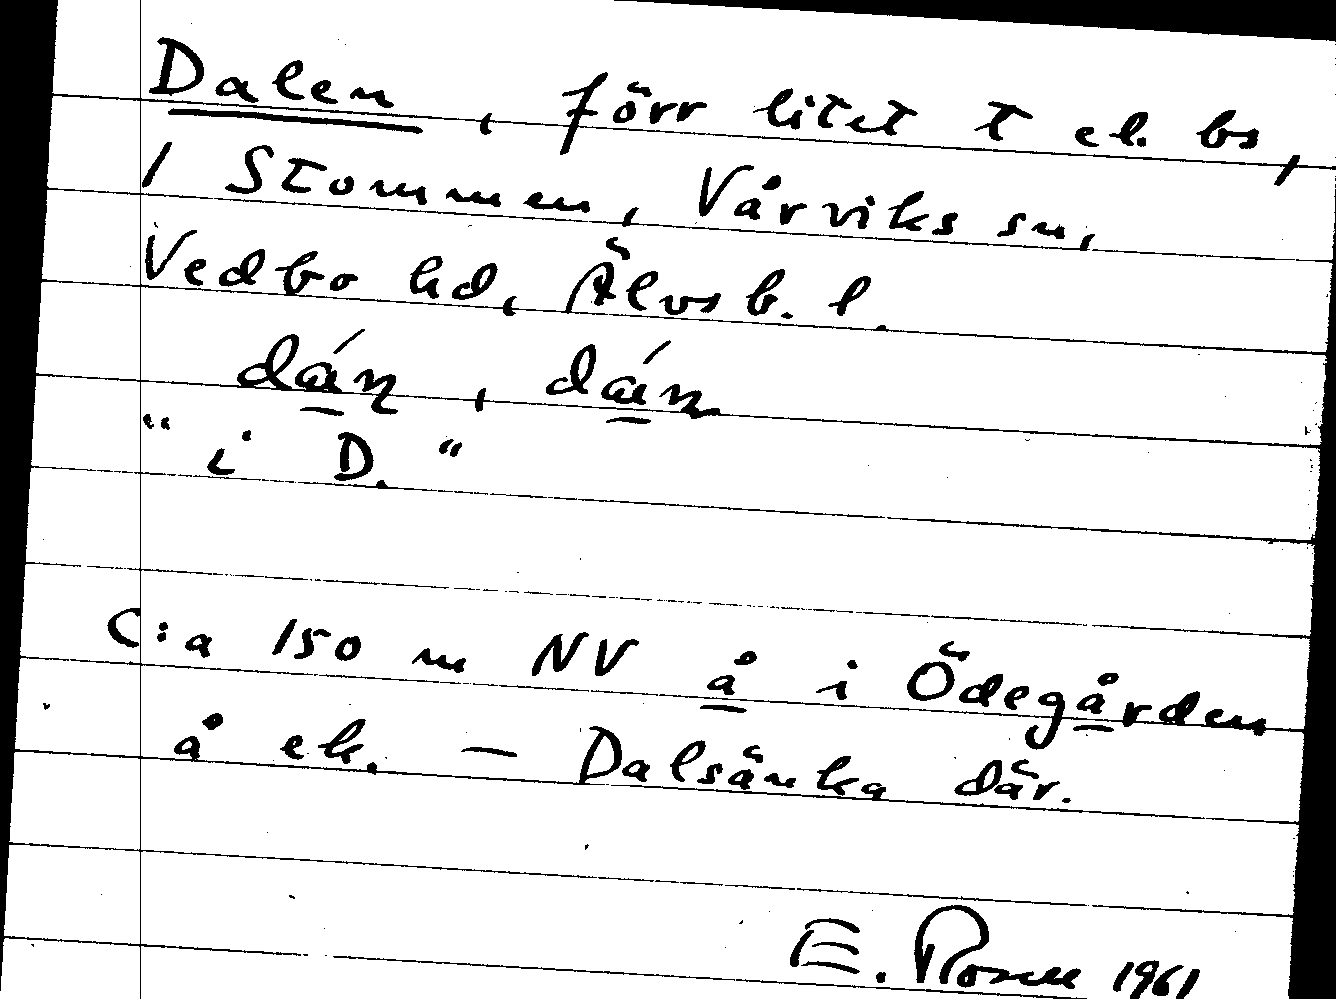 Dalen, förr litet t el. bs,
1 Stommen, Vårviks sn,
Vedbo hd, Älvsb. l.
dáɳ, dán
"i D."
C:a 150 m NV å i Ödegården
å ek. — Dalsänka där.
E. Rosell 1961